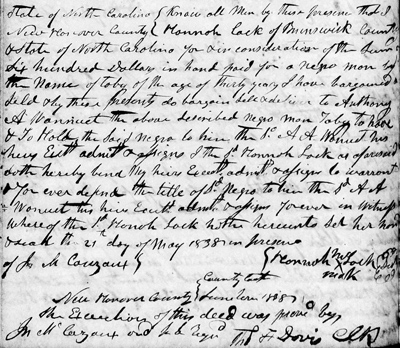 State of North Carolina } Know all Men by these presents that I
New Hanover County } Hannah Cack of Brunswick County
& State of North Carolina for & in consideration of the sum
Six hundred Dollars in hand paid for a negro man by
the Name of Toby of the age of thirty years I have bargained
& Sold & by these presents do bargain sell & deliver to Anthony
A Wannuet the above described negro man Toby to have
& To Hold the said Negro to him the Sd A A Wanuet his
heirs Exrs admrs & assigns I the Sd Hannah as aforesaid
doth hereby bind My heirs Execrs admrs & assigns to warrant
& for ever defend the title of Sd Negro to him the Sd A A
Wanuet his heirs Execrs admrs & assigns forever in witness
whereof the Sd Hanah hath hereunto set her hand
& seal the 21 day of May 1838 in presence
of Jn M Cauzaux } Hannah her mark Seal
New Hanover County } County Court
June term 1838
The Execution of this deed was proved by
Jn Mc Cauzaux and Regd Thos F Davis Clk